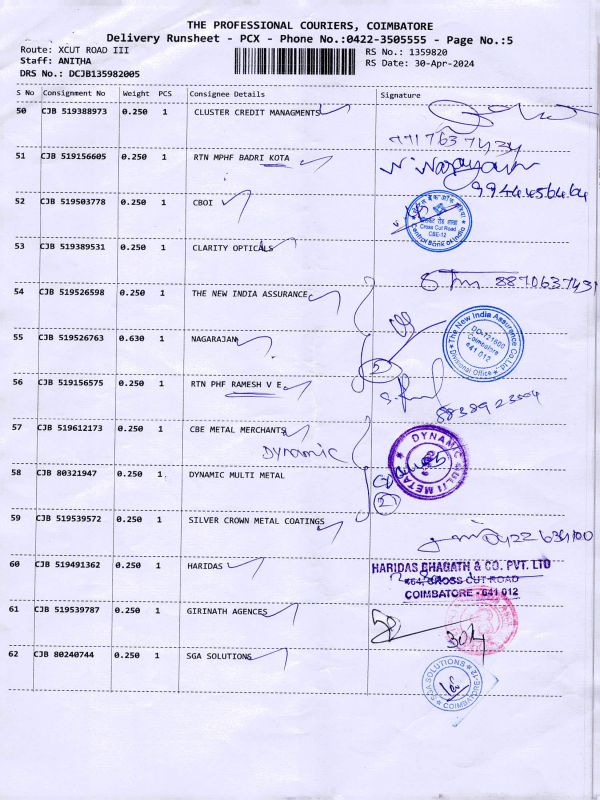 THE PROFESSIONAL COURIERS, COIMBATORE
Delivery Runsheet - PCX - Phone No.:0422-3505555 - Page No.:5
Route: XCUT ROAD III
RS No.: 1359820
Staff: ANITHA
RS Date: 30-Apr-2024
DRS No.: DCJB135982005
S No Consignment No Weight PCS Consignee Details Signature
50 CJB 519388973 0.250 1 CLUSTER CREDIT MANAGMENTS
51 CJB 519156605 0.250 1 RTN MPHF BADRI KOTA
52 CJB 519503778 0.250 1 CBOI
Cross Cut Road
CBE-12
Central Bank of India
53 CJB 519389531 0.250 1 CLARITY OPTICALS
8870637431
54 CJB 519526598 0.250 1 THE NEW INDIA ASSURANCE
The New India Assurance Co. Ltd
DO-721600
Coimbatore
641 012
Divisional Office
55 CJB 519526763 0.630 1 NAGARAJAN
2
56 CJB 519156575 0.250 1 RTN PHF RAMESH V E
57 CJB 519612173 0.250 1 CBE METAL MERCHANTS
Dynamic
DYNAMIC MULTI METAL
58 CJB 80321947 0.250 1 DYNAMIC MULTI METAL
2
59 CJB 519539572 0.250 1 SILVER CROWN METAL COATINGS
60 CJB 519491362 0.250 1 HARIDAS
HARIDAS BHAGATH & CO. PVT. LTD
464, CROSS CUT ROAD
COIMBATORE - 641 012
61 CJB 519539787 0.250 1 GIRINATH AGENCES
304
62 CJB 80240744 0.250 1 SGA SOLUTIONS
SGA SOLUTIONS
COIMBATORE-12